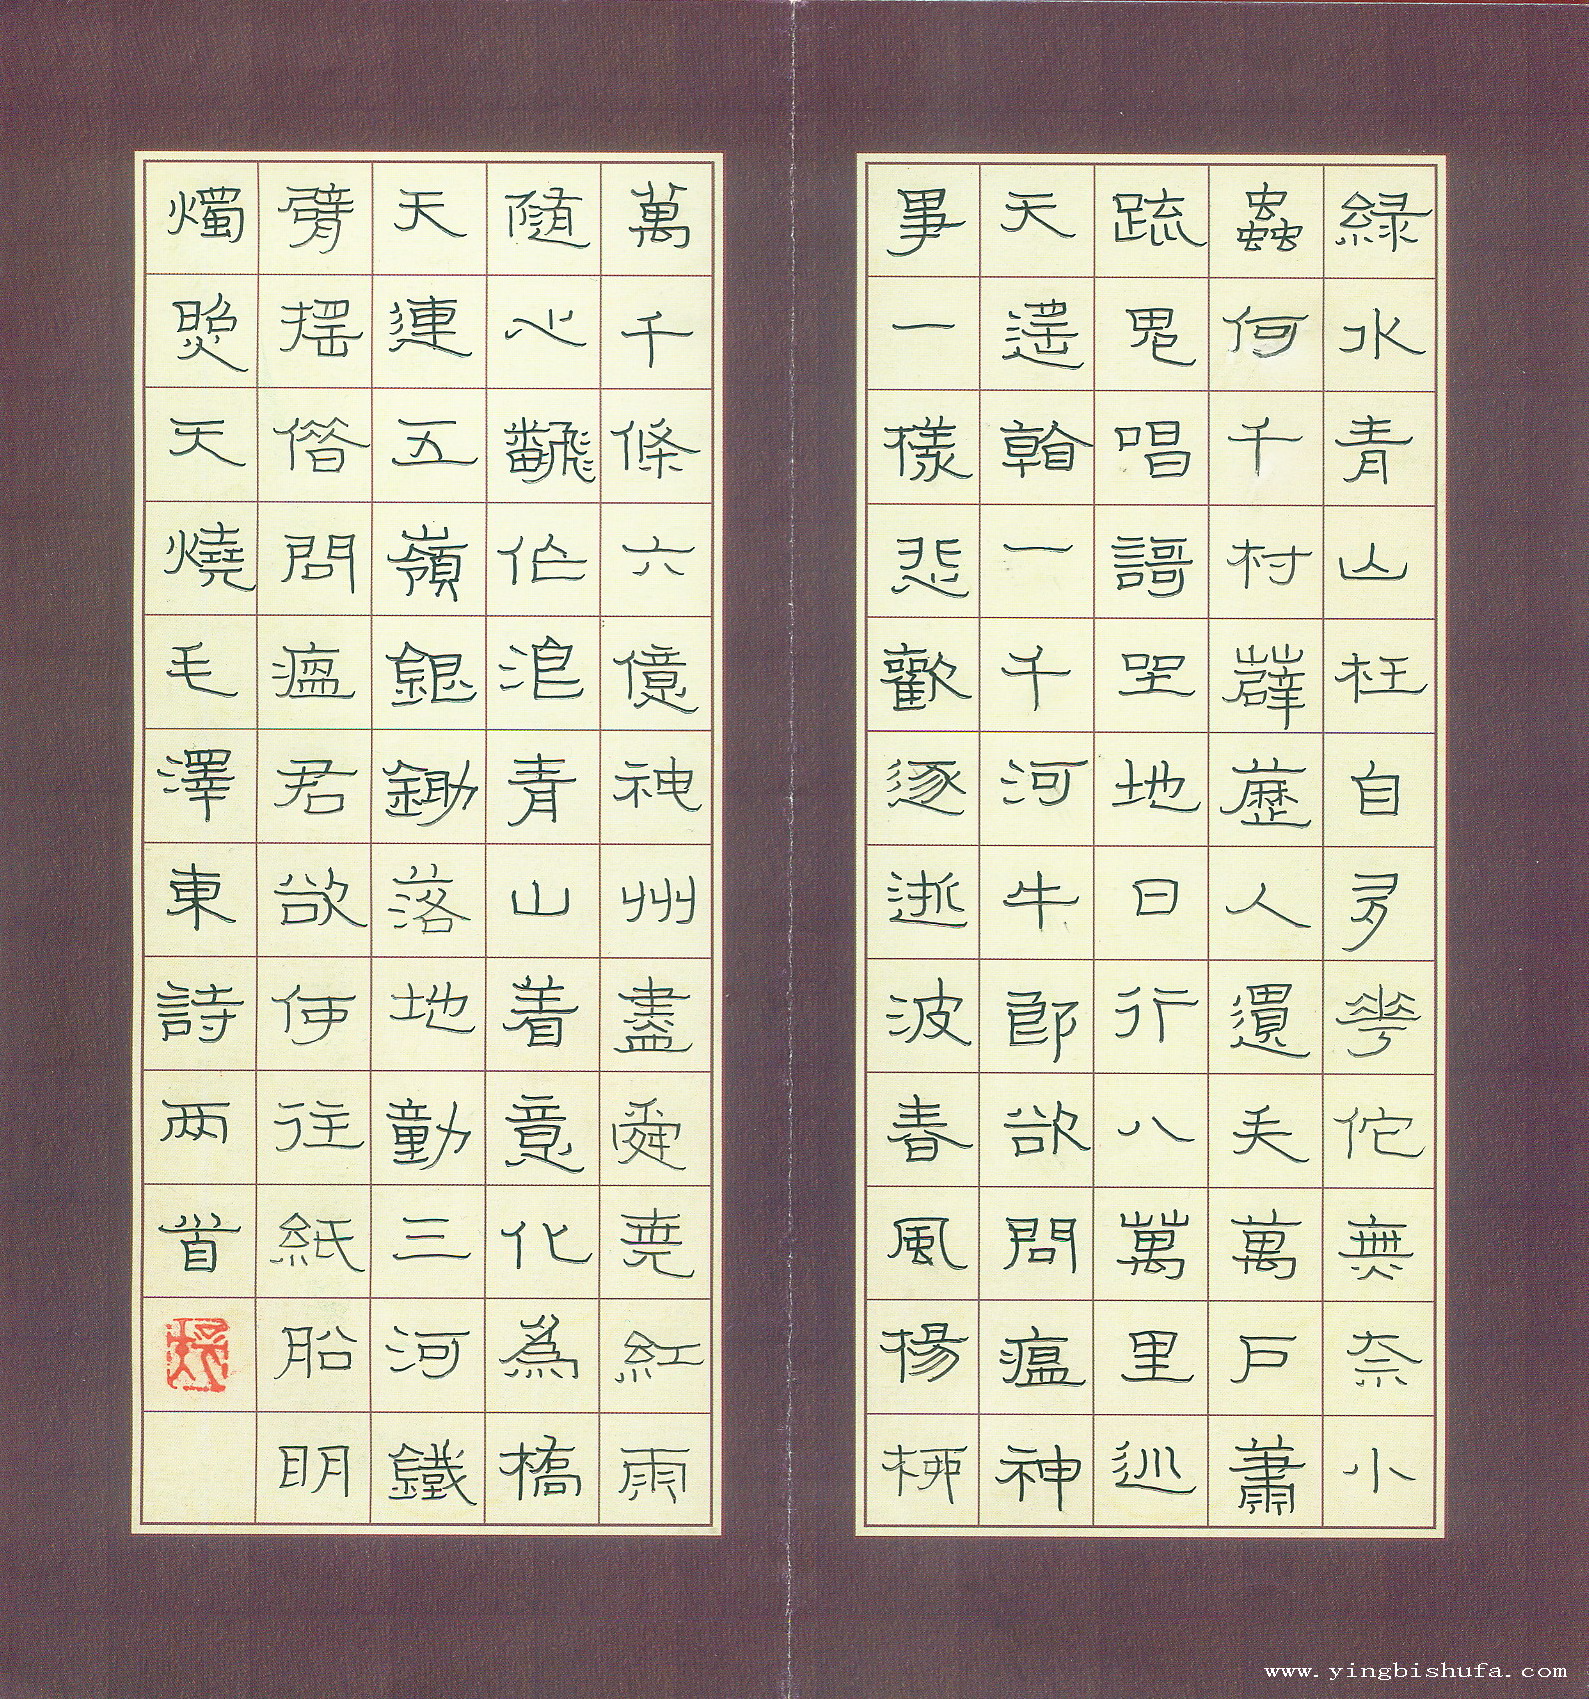 緑水青山枉自多華佗無奈小
蟲何千村薜藶人遺矢萬戶蕭
疏鬼唱謌坐地日行八萬里巡
天遥看一千河牛郎欲問瘟神
事一樣悲歡逐逝波春風楊柳
萬千條六億神州盡舜堯紅雨
隨心飜作浪青山着意化為橋
天連五嶺銀鋤落地動三河鐵
臂揺借問瘟君欲何往紙船明
燭照天燒毛澤東詩兩首
www.yingbishufa.com